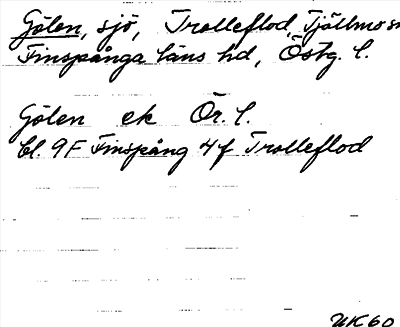 Gölen, sjö, Trolleflod, Tjällmo sn
Finspånga läns hd, Östg. l.
Gölen ek Ör. l.
bl. 9F Finspång 4f Trolleflod
UK60